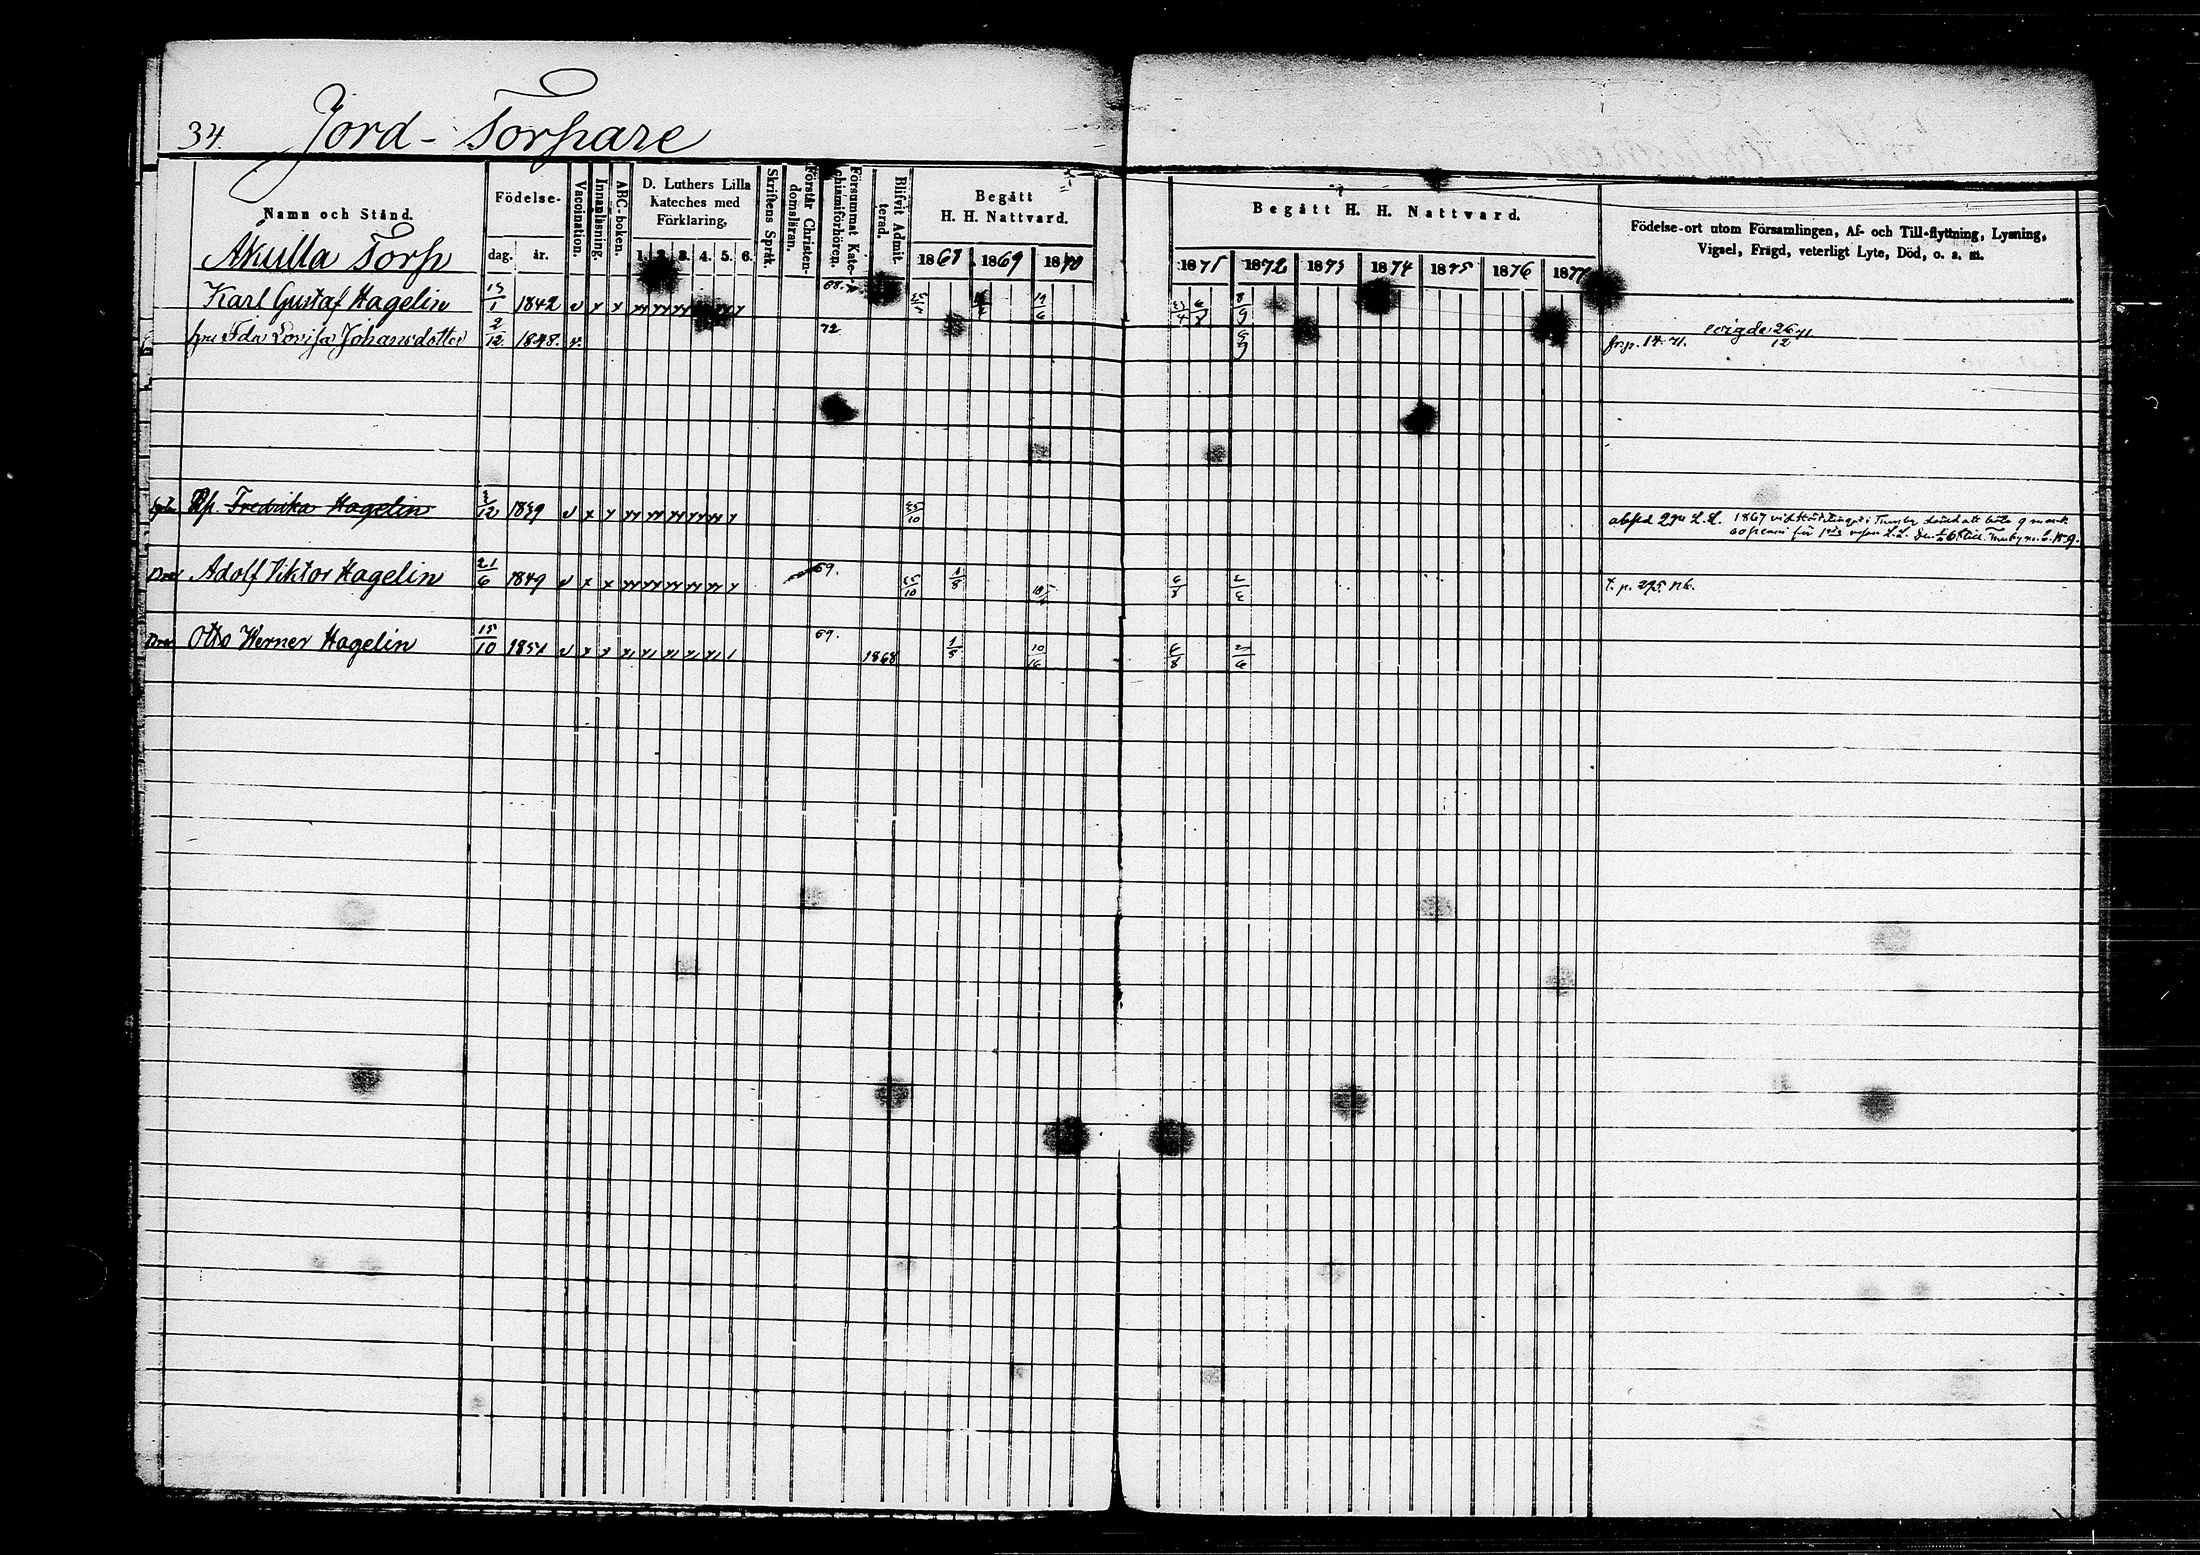 34. Jord-Torpare
Namn och Stånd.
Födelse-
dag. år.
Vaccination.
Innanläsning.
ABC-boken.
D. Luthers Lilla
Kateches med
Förklaring,
1. 2. 3. 4. 5. 6.
Skriftens Språk.
Förstår Christen-
domsläran.
Försummat Kate-
chismiförhören.
Blifvit Admit-
terad.
Begått
H. H. Nattvard.
1868 1869 1870
Begått H. H. Nattvard.
1871 1872 1873 1874 1875 1876 1877
Födelse-ort utom Församlingen, Af- och Till-flyttning, Lysning,
Vigsel, Frägd, veterligt Lyte, Död, o. s. m.
Åkulla Torp
Karl Gustaf Hagelin 15/1 1842 68. 19/6 8/9
Ida Lovisa Johansdotter 2/12 1848. v. 72 8/9 fr. p. 14. 71. vigde 26/12 71
Fredrika Hagelin 1839 25/10 1867
Adolf Viktor Hagelin 21/6 1849 69. 25/10 1/8 6/8 t. p. 295. nb.
Otto Werner Hagelin 15/10 1851 69. 1868 1/8 6/8